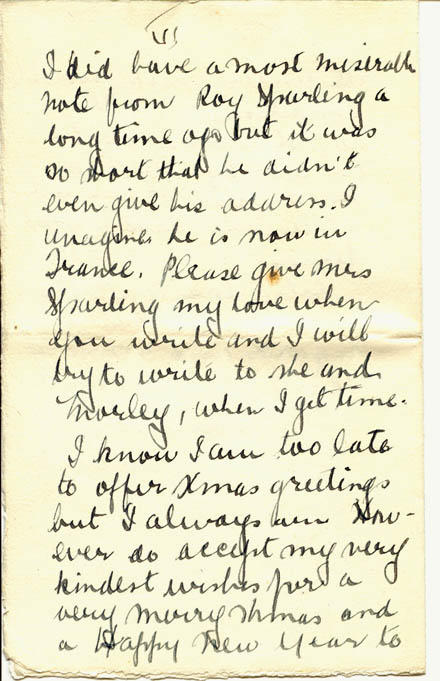 I did have a most miserable
note from Roy Sparling a
long time ago but it was
so short that he didn't
even give his address. I
imagine he is now in
France. Please give Mrs
Sparling my love when
you write and I will
try to write to she and
Morley, when I get time.
I know I am too late
to offer Xmas greetings
but I always am How-
ever do accept my very
kindest wishes for a
very merry Xmas and
a Happy New Year to